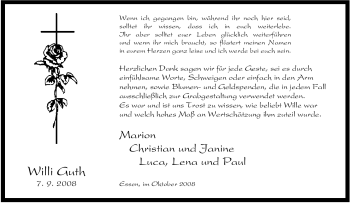 Wenn ich gegangen bin, während ihr noch hier seid,
solltet ihr wissen, dass ich in euch weiterlebe.
Ihr aber solltet euer Leben ohne mich weiterführen
und wenn ihr mich braucht, so flüstert meinen Namen
in eurem Herzen ganz leise und ich werde bei euch sein.
Herzlichen Dank sagen wir für jede Geste, sei es durch
einfühlsame Worte, Schweigen oder einfach in den Arm
nehmen, sowie Blumen- und Geldspenden, die in jedem Fall
ausschließlich zur Grabgestaltung verwendet werden.
Es war und ist uns Trost zu wissen, wie beliebt Wille war
und welch hohes Maß an Wertschätzung ihm zuteil wurde.
Marion
Christian und Janine
Luca, Lena und Paul
Willi Guth
7. 9. 2008
Essen, im Oktober 2008